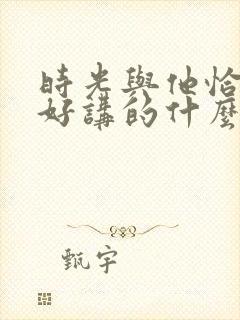 時光與他恰
好講的什麼
甄宇